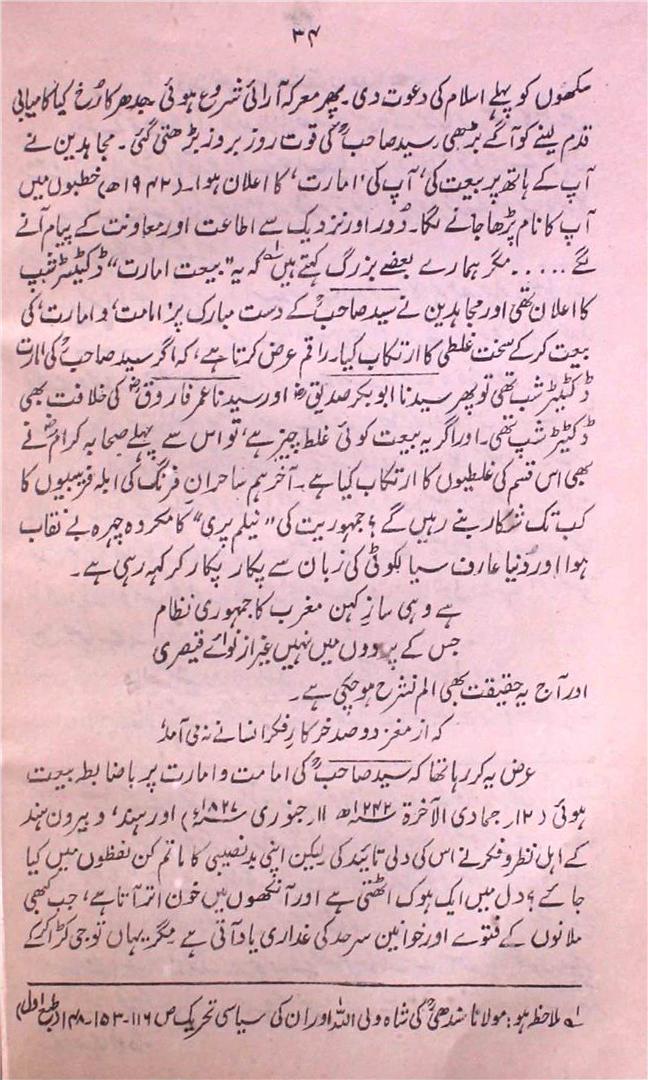 ۳۴
سکھوں کو پہلے اسلام کی دعوت دی۔ پھر معرکہ آرائی شروع ہوئی جدھر کا رُخ کیا کامیابی
قدم لینے کو آگے بڑھی سید صاحبؒ کی قوت روز بروز بڑھتی گئی۔ مجاہدین نے
آپ کے ہاتھ پر بیعت کی، آپ کی 'امارت' کا اعلان ہوا۔ (۱۹۴۲ھ) خطبوں میں
آپ کا نام پڑھا جانے لگا۔ دُور اور نزدیک سے اطاعت اور معاونت کے پیام آنے
لگے ..... مگر ہمارے بعضے بزرگ کہتے ہیں ۱؎ کہ یہ "بیعت امارت" ڈکٹیٹر شپ
کا اعلان تھی اور مجاہدین نے سید صاحبؒ کے دست مبارک پر 'امامت' و امارت' کی
بیعت کر کے سخت غلطی کا ارتکاب کیا۔ راقم عرض کرتا ہے، کہ اگر سید صاحبؒ کی امارت
ڈکٹیٹر شپ تھی تو پھر سیدنا ابوبکر صدیقؓ اور سیدنا عمر فاروقؓ کی خلافت بھی
ڈکٹیٹر شپ تھی۔ اور اگر یہ بیعت کوئی غلط چیز ہے، تو اس سے پہلے صحابہ کرامؓ نے
بھی اس قسم کی غلطیوں کا ارتکاب کیا ہے۔ آخر ہم ساحرانِ فرنگ کی ابلہ فریبیوں کا
کب تک شکار بنے رہیں گے؟ جمہوریت کی "نیلم پری" کا مکروہ چہرہ بے نقاب
ہوا اور دُنیا عارف سیالکوٹی کی زبان سے پکار پکار کر کہہ رہی ہے۔
ہے وہی سازِ کہن مغرب کا جمہوری نظام
جس کے پردوں میں نہیں غیر از نوائے قیصری
اور آج یہ حقیقت بھی الم نشرح ہو چکی ہے۔
کہ از مغز دو صد خر کارِ فکر انسانے نہ نی آمد'
عرض یہ کر رہا تھا کہ سید صاحبؒ کی امامت و امارت پر باضابطہ بیعت
ہوئی (۱۲ر جمادی الآخرۃ ۱۲۴۲ھ ۱۱ر جنوری ۱۸۲۷ء) اور ہند' و بیرون ہند
کے اہل نظر و فکر نے اس کی دلی تائید کی لیکن اپنی بدنصیبی کا ماتم کن لفظوں میں کیا
جائے؟ دل میں ایک ہوک اٹھتی ہے اور آنکھوں میں خون اتر آتا ہے، جب کبھی
ملانوں کے فتوے اور خوانین سرحد کی غداری یاد آتی ہے مگر یہاں تو جی کڑا کر کے
۱؎ ملاحظہ ہو: مولانا سندھیؒ کی شاہ ولی اللہ اور ان کی سیاسی تحریک ص ۱۱۶-۱۵۳-۱۴۸ (طبع اول)